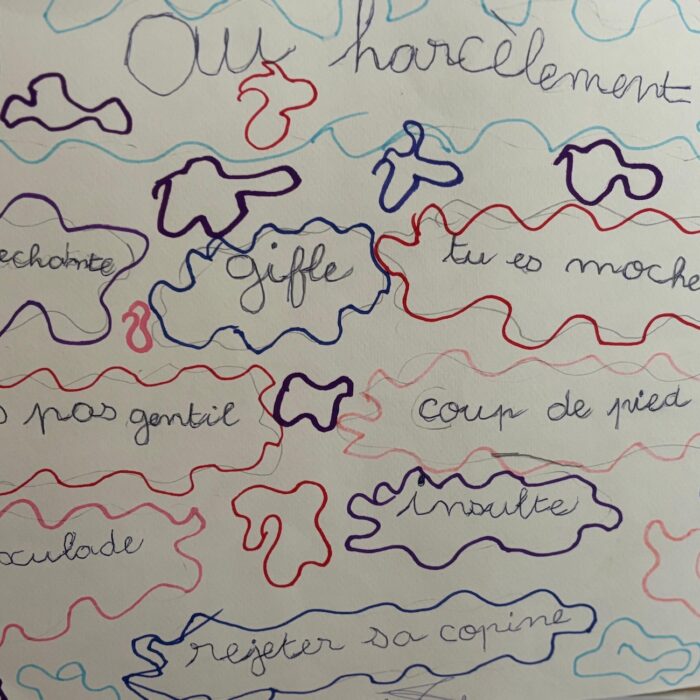 Ou harcèlement
echante
gifle
tu es moche
s pas gentil
coup de pied
insulte
sculade
rejeter sa copine